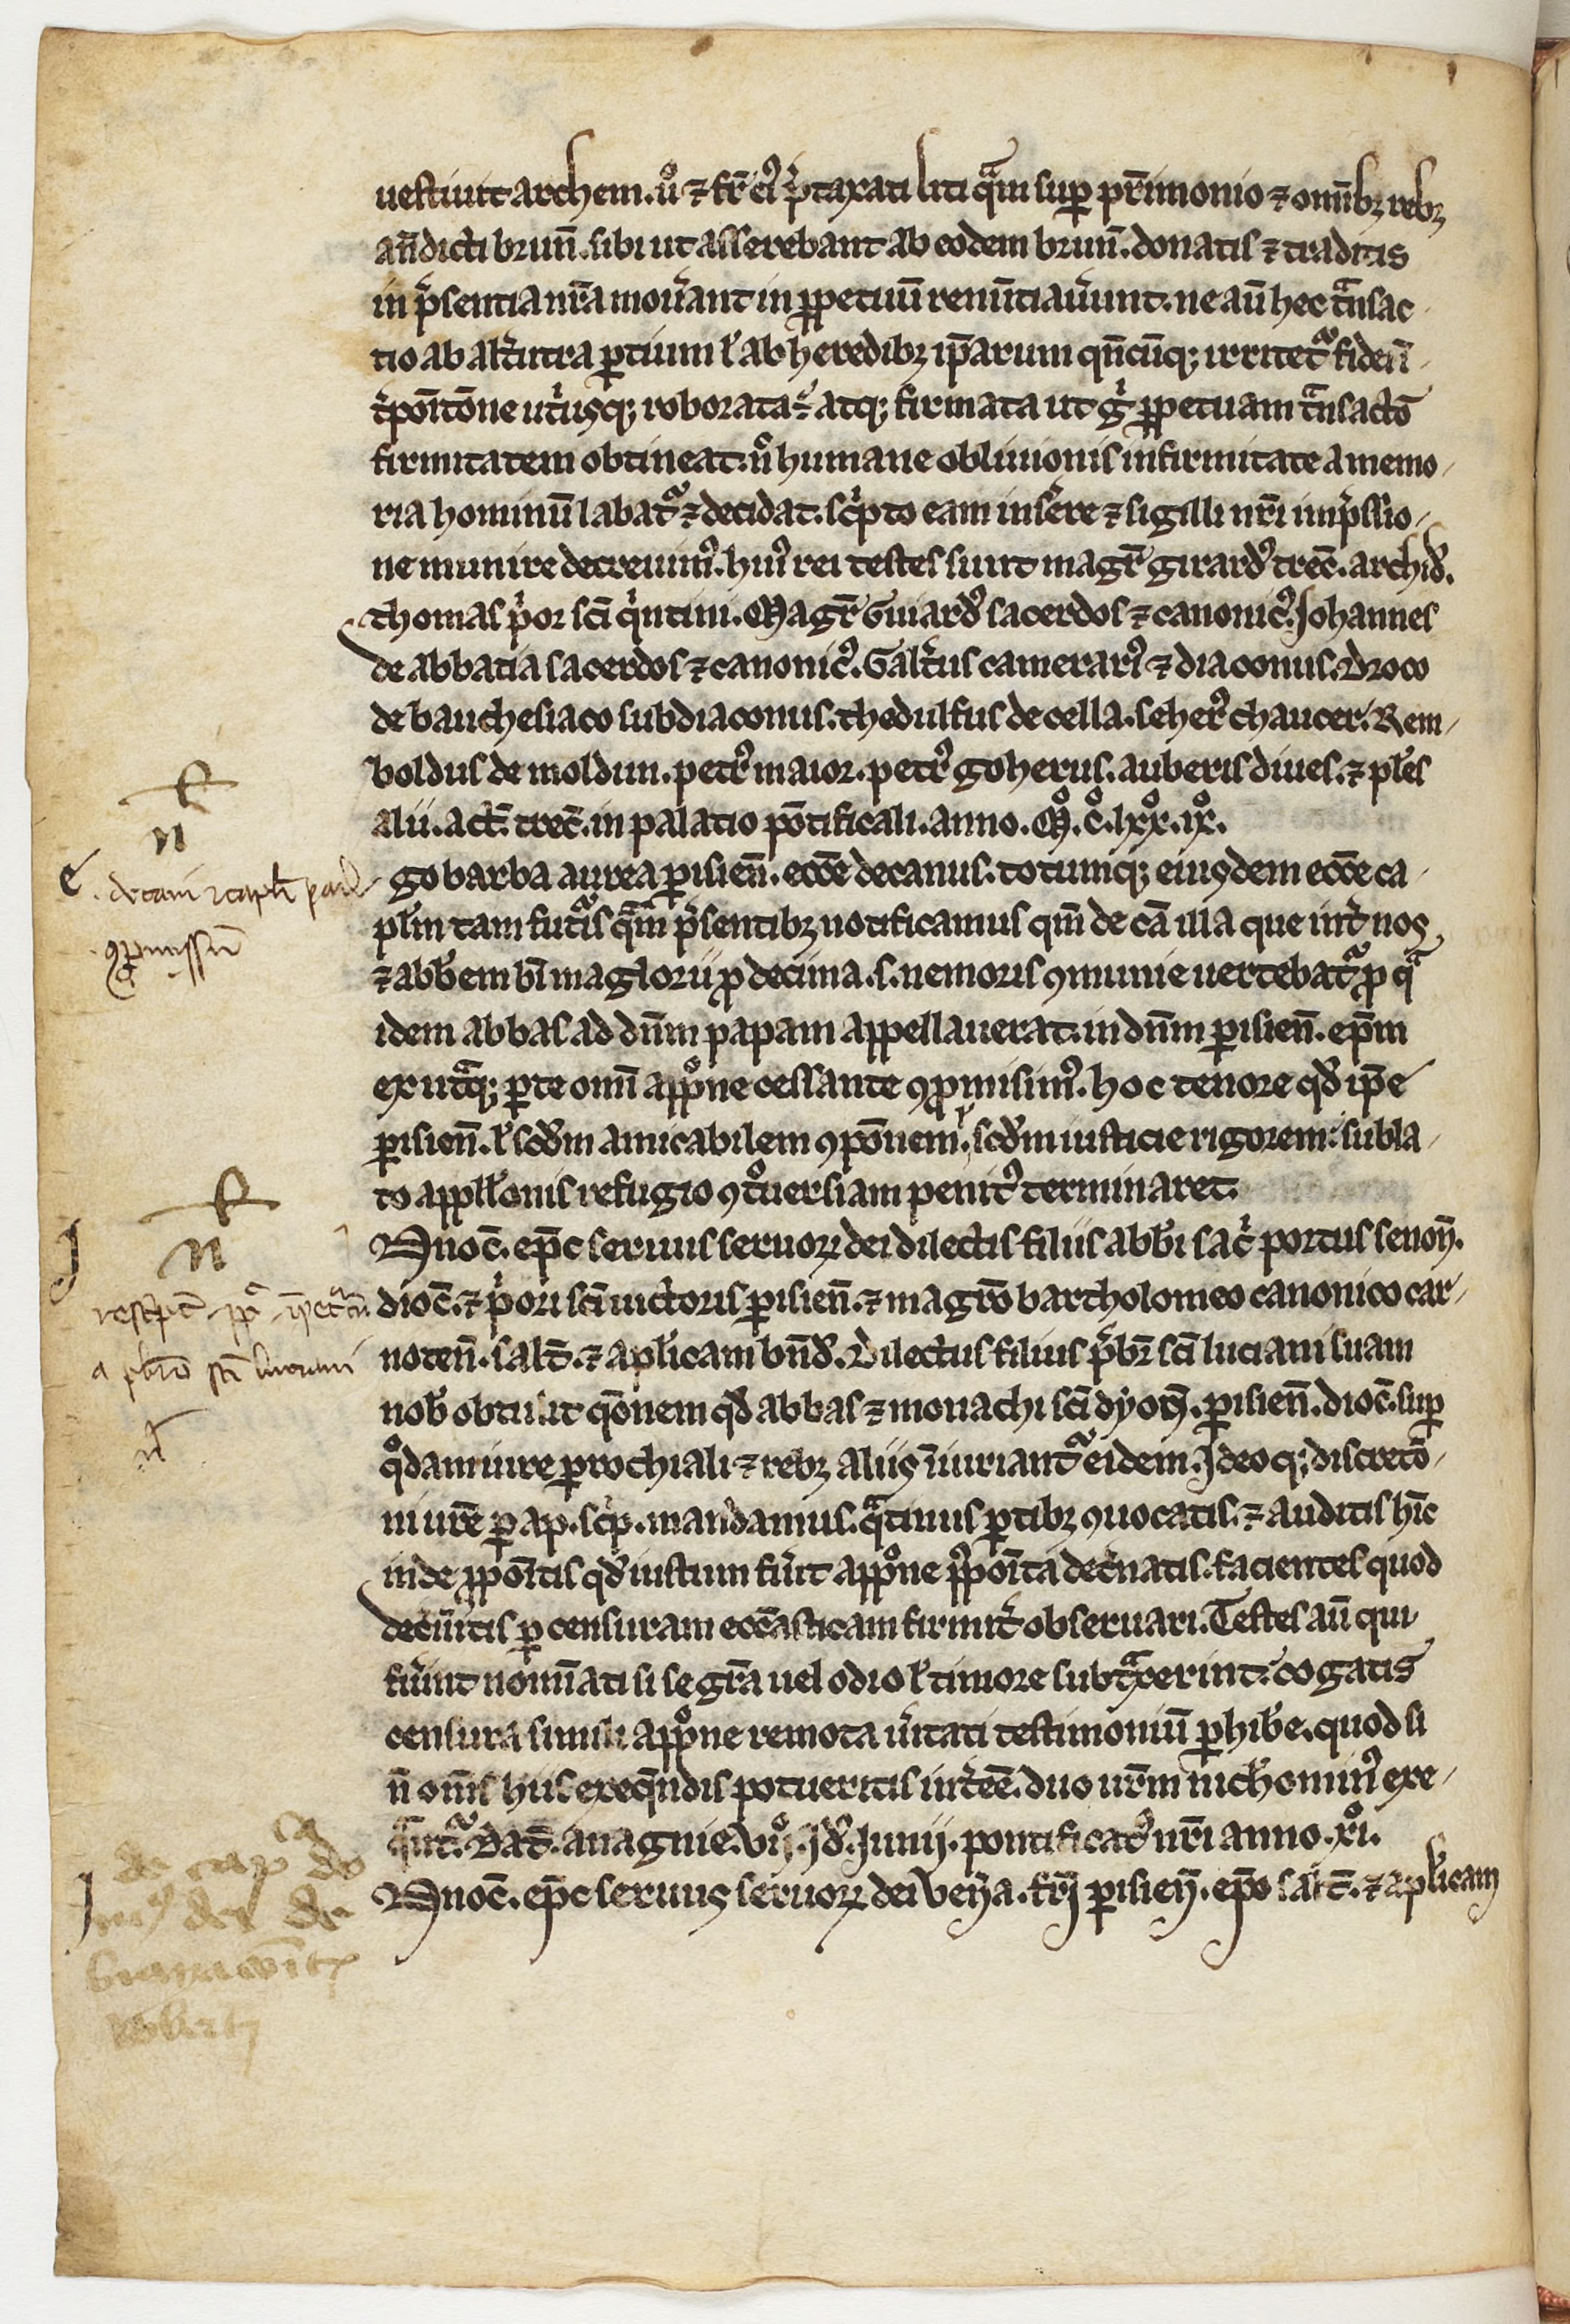 uestiuit archem. u͛o ⁊ fr̄ ei᷒ p̄taxati liti qᷓm sup̱ pr̄imonio ⁊ omībꝫ rebꝫ
an̄dicti brun̄. sibi ut asserebant ab eodem brun̄. donatis ⁊ traditis
in p̄sentia nr̄a mou͛ant in ꝑpetuū renūtiau͛unt. ne aū hec tᷓnsac
tio ab alt͛utra ꝑtium ł ab heredibꝫ ip̄arum qn̄cūqꝫ irritetᷓ fidei
p̄ponitōne ut͛usqꝫ roborata ē atqꝫ firmata ut g̾ ꝑpetuam tᷓnsactō
firmitatem obtineat. n̊ humane obliuionis infirmitate a memo
ria hominū labatᷓ ⁊ decidat. sc͛pto eam ins͛ere ⁊ sigilli nr̄i imp̄ssio
ne munire decreuim᷒. hui᷒ rei testes sunt magr̄ girard᷒ trec̄. archid̄.
thomas p͛or sc̄i q͛ntini. Magr̄ Guiard᷒ sacerdos ⁊ canonic᷒. Johannes
de abbatia sacerdos ⁊ canonic᷒. Galt͛us camerari᷒ ⁊ diaconus. Droco
de bauchesiaco subdiaconus. thedulfus de cella. seher᷒ chaucer. Rem
boldus de moldun. petr᷒ maior. petr᷒ goherus. auberis diues. ⁊ pl̄es
alii. act̄. trec̄. in palatio pōtificali. anno. M̊. c̊. lxx̊. ix̊.
go barba aurea ꝑisien̄. ecc̄e decanus. totumqꝫ eiusdem ecc̄e ca
pl̄m tam futᷓis qᷓm p̄sentibꝫ notificamus qm̄ de cā illa que int͛ nos
⁊ abb̄em bī maglorii ꝓ decima .s. nemoris ꝯmunie uertebatᷓ ꝓ qᷓ
idem abbas ad dn̄m papam appellauerat. in dn̄m ꝑisien̄. ep̄m
ex utᷓqꝫ ꝑte omī app̊ne cessante ꝯꝓmisim᷒. hoc tenore qd̄ ip̄e
ꝑisien̄. ł scd̄m amicabilem ꝯpōnem ł scd̄m iusticie rigorem: subla
to appll̄onis refugio ꝯt̊uersiam penit᷒ terminaret.
nnoc̄. ep̄c seruus seruoꝝ dei dilectis filiis abb̄i sac͛ portus senon̄.
dioc̄. ⁊ p͛ori sc̄i uictoris ꝑisien̄. ⁊ magr̄o bartholomeo canonico car
noten̄. salt̄. ⁊ apl̄icam bn̄d̄. Dilectus filius p̄br̄ sc̄i luciani suam
nob̄ obtulit q̄onem qd̄ abbas ⁊ monachi sc̄i dyon̄. ꝑisien̄. dioc̄. sup̱
q̊dam iure ꝑrochiali ⁊ rebꝫ aliis īiuriantᷓ eidem. Ideoqꝫ discretō
ni ur̄e ꝑ ap. sc͛p. mandamus. qᷓtinus ꝑtibꝫ ꝯuocatis. ⁊ auditis hīc
inde ꝓpōitis qd̄ iustum fu͛it app̊ne p̊pōita dec͛natis. facientes quod
decreu͛itis ꝑ censuram ecc̄asticam firmit͛ obseruari. Testes aū qui
fu͛int nominati si se gr̄a uel odio ł timore subtᷓxerint. cogatis
censura simili app̊ne remota u͛itati testimoniū ꝑhib̄e. quod si
n̄ om̄s hiis exeqn̄dis potueritis int͛eē. duo ur̄m nichomin᷒ exe
qᷓntᷓ. Dat̄. anagnie. vij̊. Id̄. Junij. pontificat᷒ nr̄i anno. xi̊.
nnoc̄. ep̄c seruus seruoꝝ dei ven̄a. fr̄j ꝑisien̄. ep̄o salt̄. ⁊ apl̄icam
e
. decani ⁊ capl̄i par̄
. ꝯꝓmissū
J
resc͛pt̄ pp̄ īpet̄tū
a pb̄ro sc̄i luciani
J